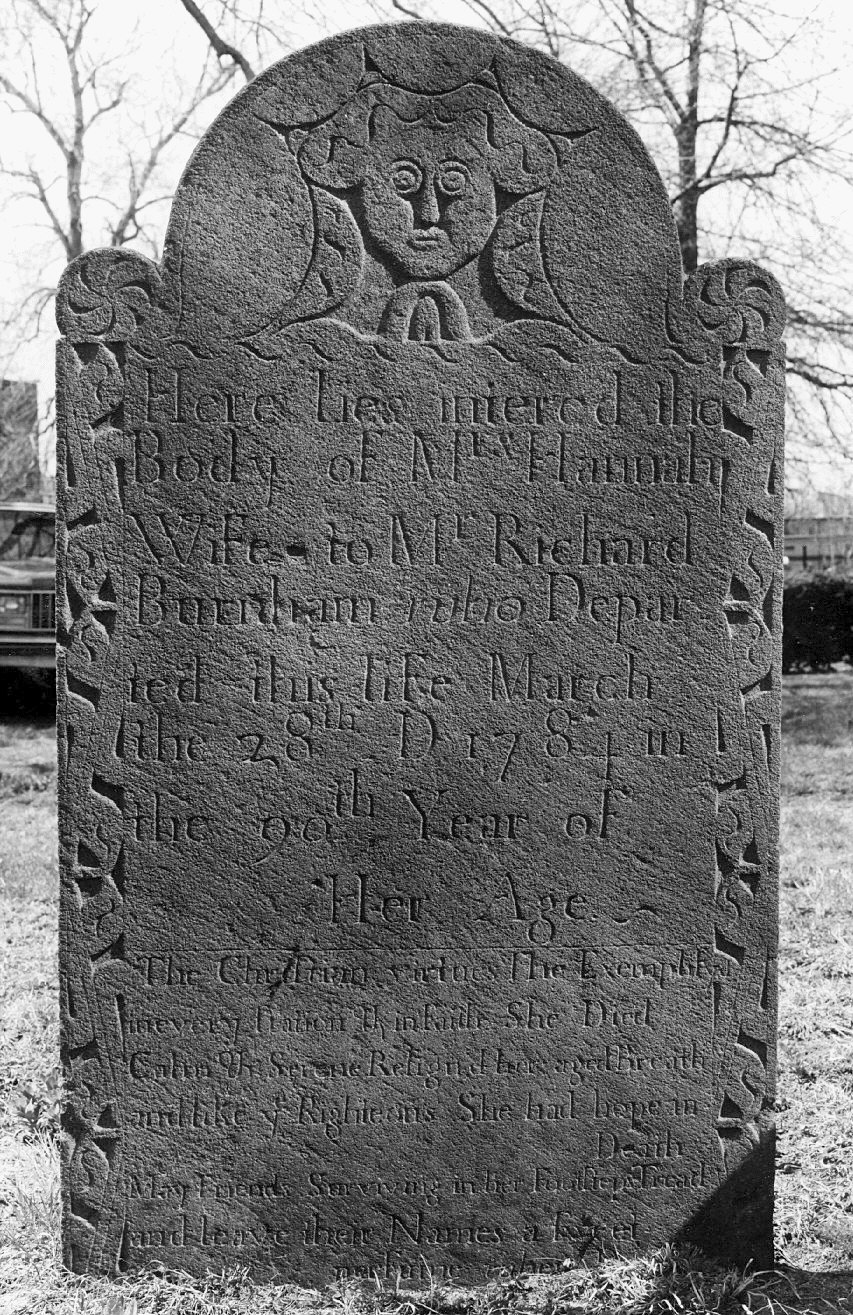 Here lies intere'd the
Body of Mrs Hannah
Wife - to Mr Richard
Burnham who Depar
ted this life March
the 28th D 1784 in
the 90th Year of
Her Age.
The Christian virtues She Exemplified
in every station & in Faith She Died
Calm & Serene Resign'd her aged Breath
and like ye Righteous She had hope in
Death
May Friends Surviving in her Footsteps Tread
and leave their Names a sweet